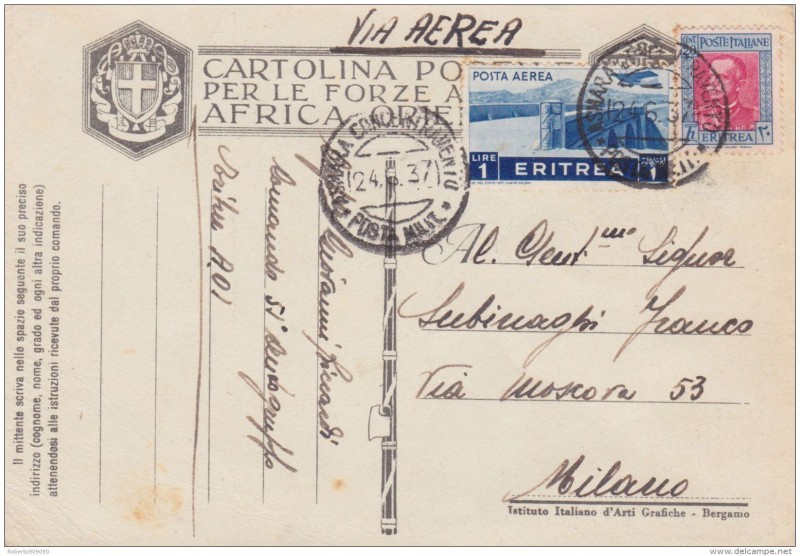 VIA AEREA
CARTOLINA PO
PER LE FORZE A
AFRICA ORIE
POSTA AEREA
LIRE 1 ERITREA 1
CENT 20
POSTE ITALIANE
ERITREA
ASMARA CONCENTRAMENTO
24.6.37
POSTA MILIT.
ASMARA CONCENTRAMENTO
24.6.37
Al Gent.mo Signor
Subinaghi Franco
Via Moscova 53
Milano
Istituto Italiano d'Arti Grafiche - Bergamo
Giovanni
Comando 51°
A.O.I
Il mittente scriva nello spazio seguente il suo preciso
indirizzo (cognome, nome, grado ed ogni altra indicazione)
attenendosi alle istruzioni ricevute dal proprio comando.
Roberto909090
delcampe.net